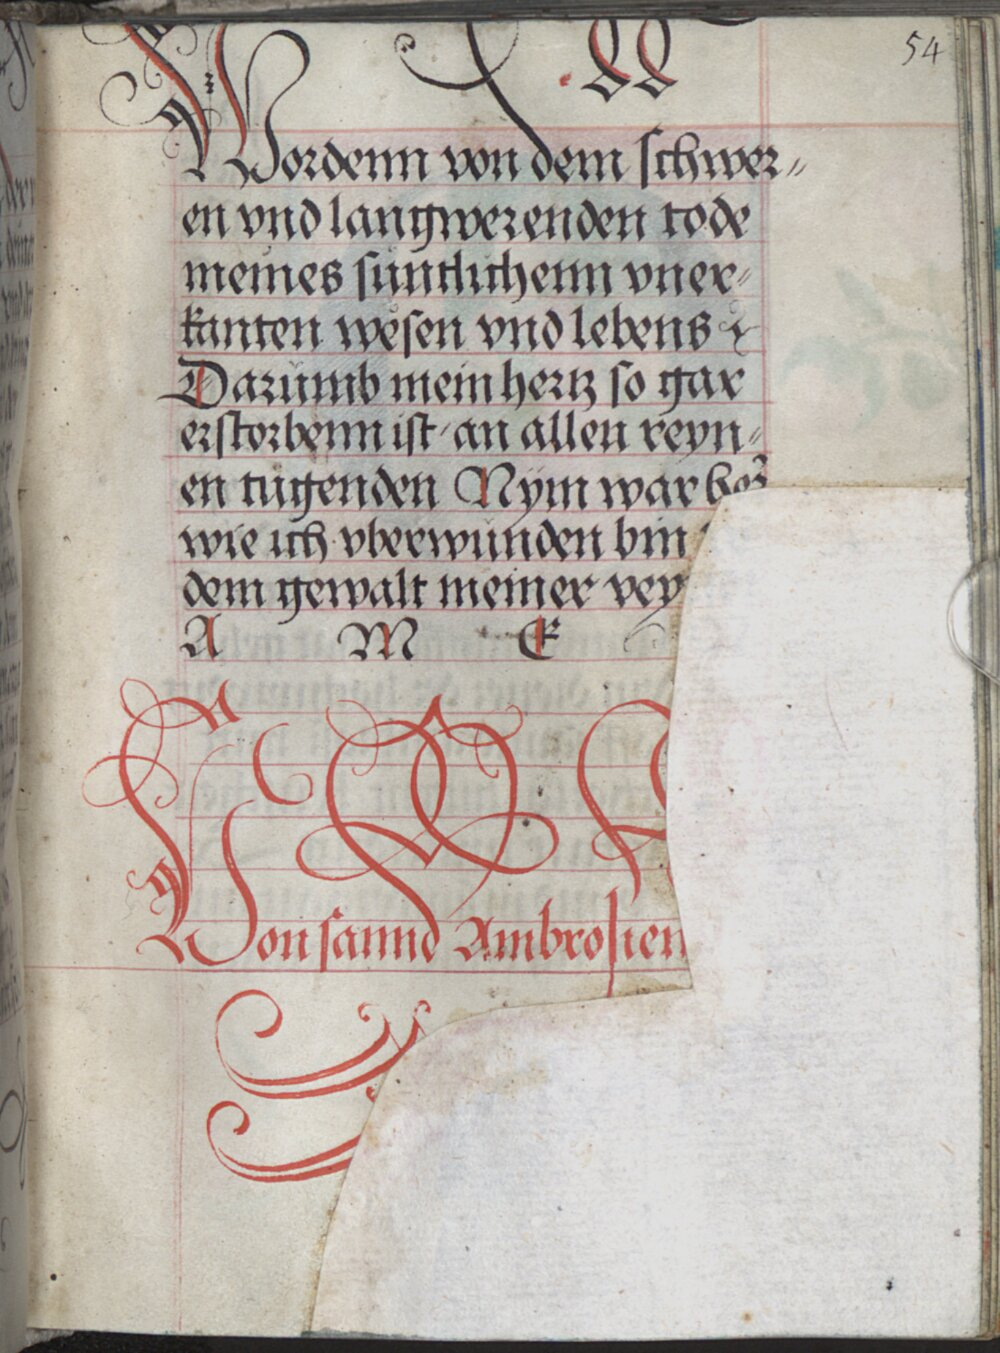 54
Wordenn von dem schwer-
en vnd langwerenden tode
meines suntlichenn vner-
kanten wesen vnd lebens
Darumb mein hertz so gar
erstorbenn ist · an allen reyn-
en tugenden Nym war
wie ich vberwunden bin
dem gewalt meiner vey
A M E
Von sannd Ambrosien